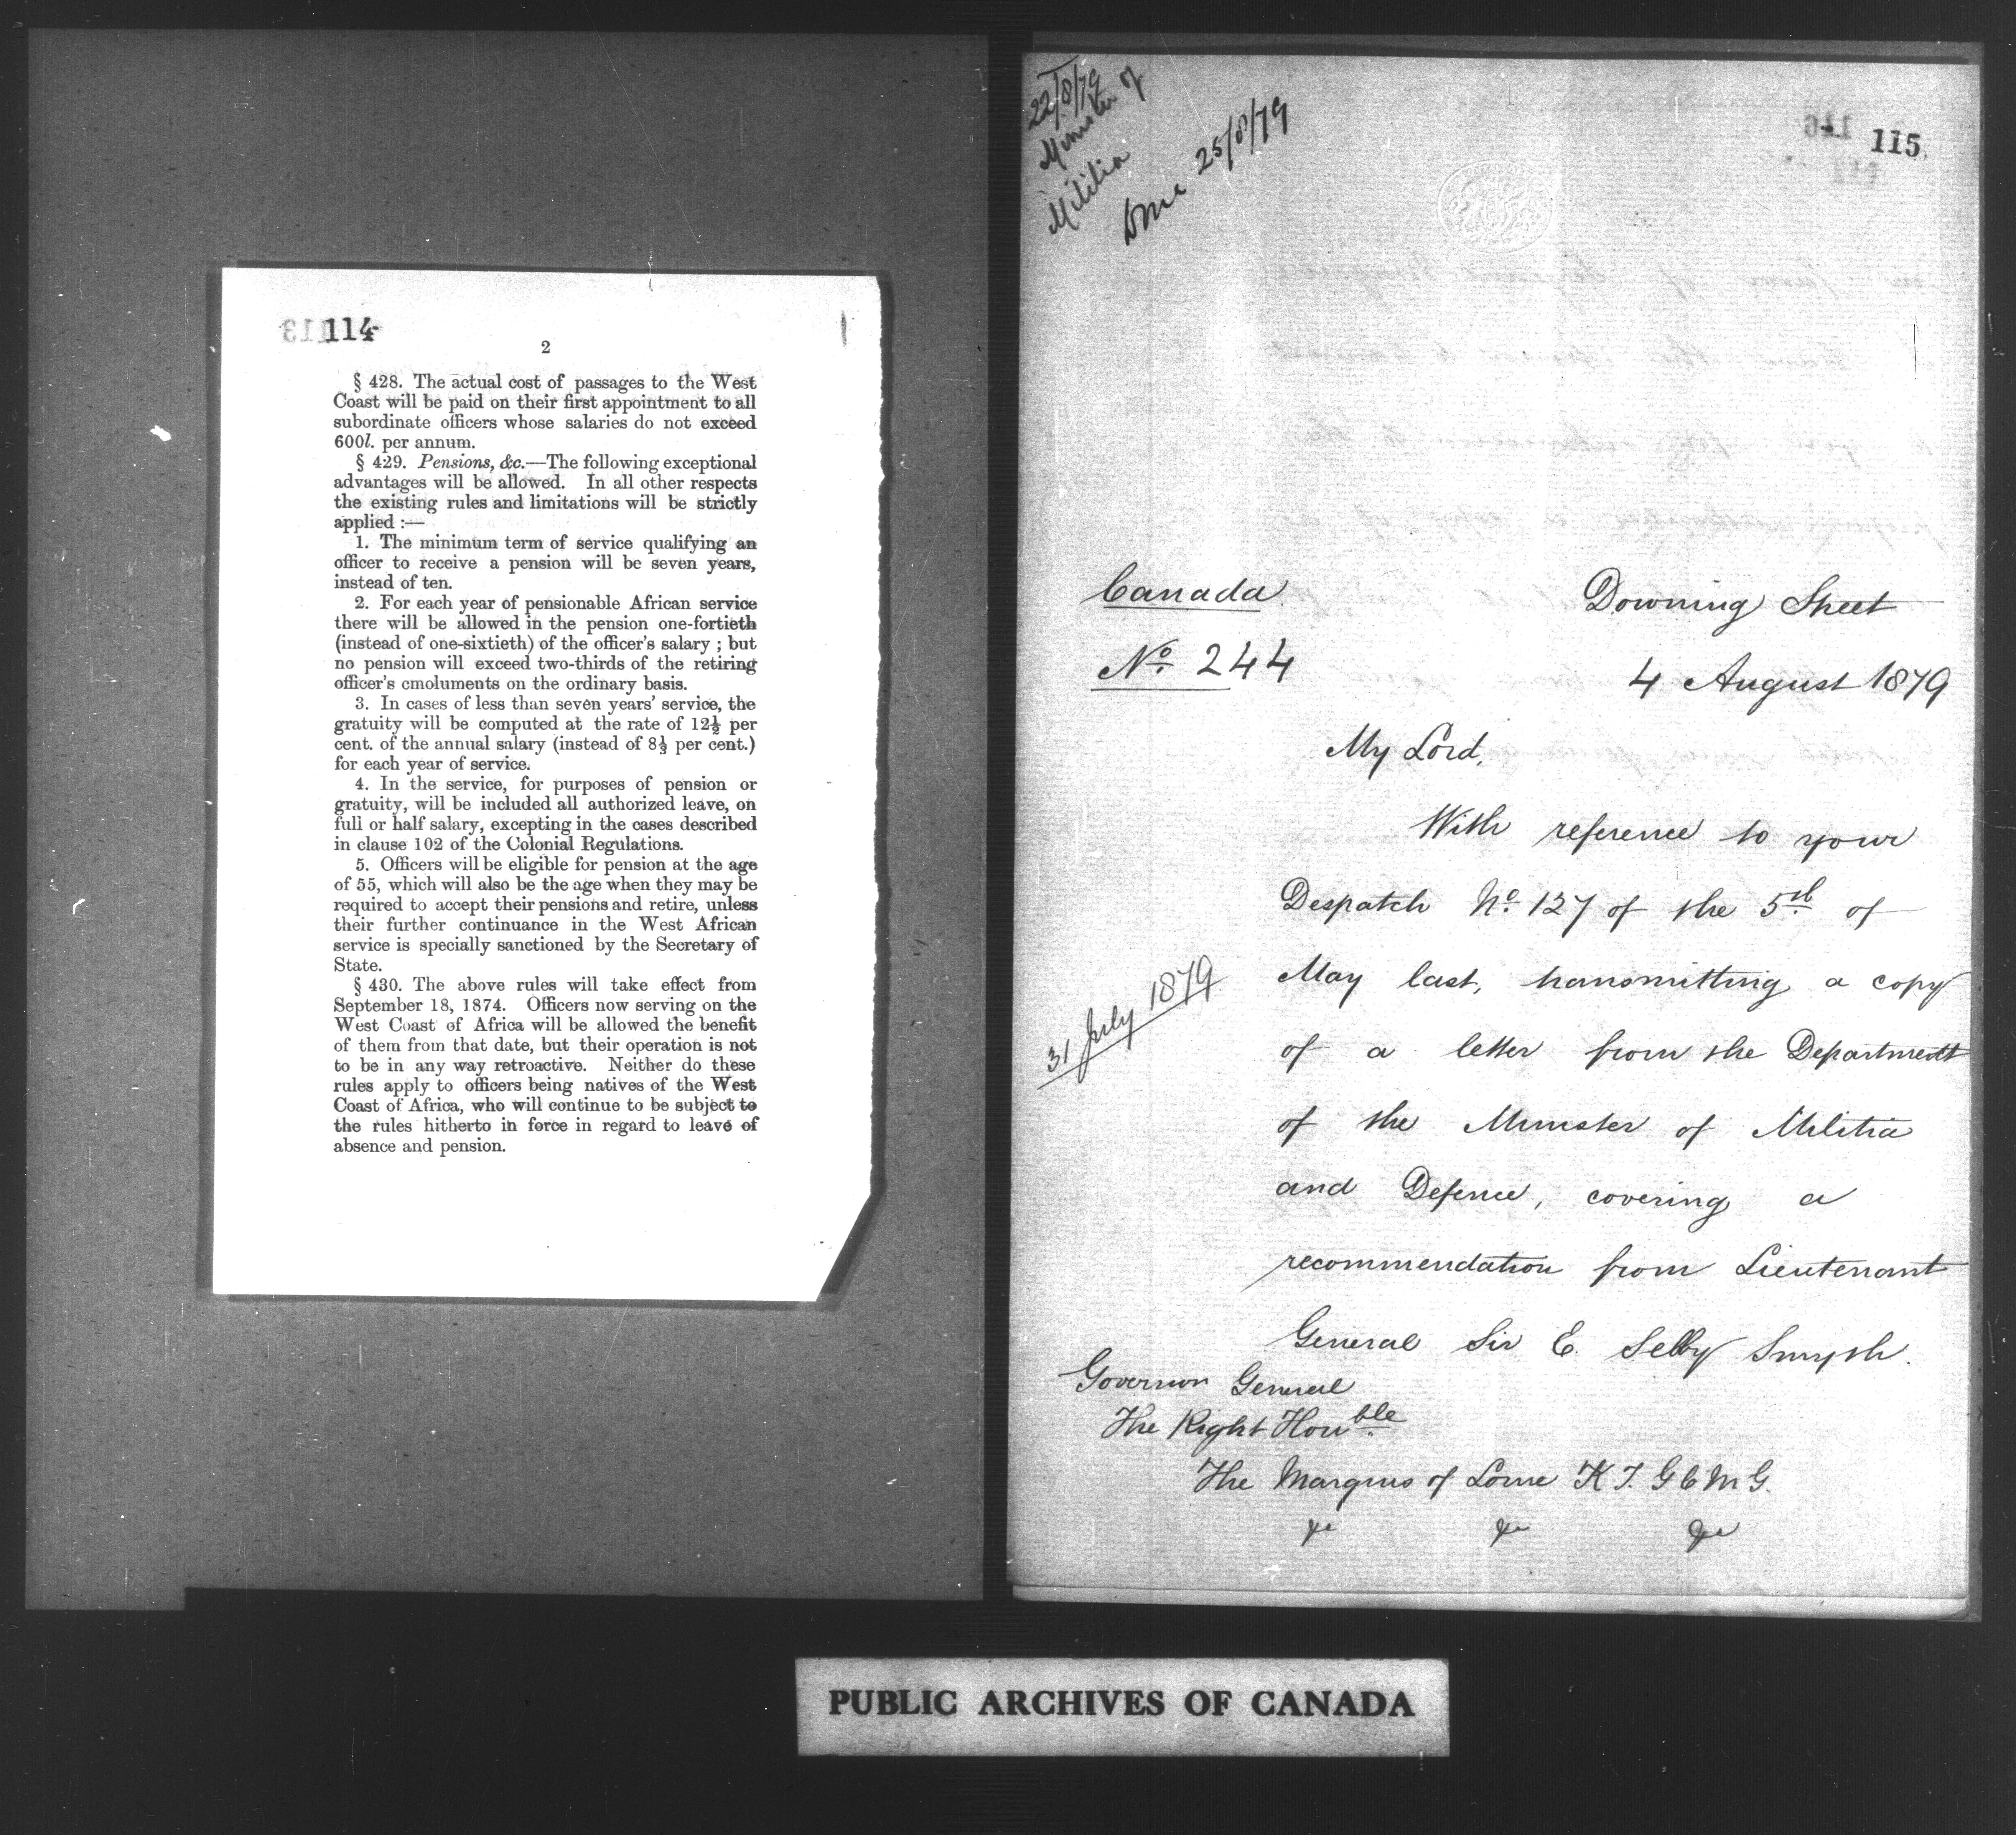 114
2
§ 428. The actual cost of passages to the West
Coast will be paid on their first appointment to all
subordinate officers whose salaries do not exceed
600l. per annum.
§ 429. Pensions, &c.—The following exceptional
advantages will be allowed. In all other respects
the existing rules and limitations will be strictly
applied :—
1. The minimum term of service qualifying an
officer to receive a pension will be seven years,
instead of ten.
2. For each year of pensionable African service
there will be allowed in the pension one-fortieth
(instead of one-sixtieth) of the officer's salary ; but
no pension will exceed two-thirds of the retiring
officer's emoluments on the ordinary basis.
3. In cases of less than seven years' service, the
gratuity will be computed at the rate of 12½ per
cent. of the annual salary (instead of 8⅓ per cent.)
for each year of service.
4. In the service, for purposes of pension or
gratuity, will be included all authorized leave, on
full or half salary, excepting in the cases described
in clause 102 of the Colonial Regulations.
5. Officers will be eligible for pension at the age
of 55, which will also be the age when they may be
required to accept their pensions and retire, unless
their further continuance in the West African
service is specially sanctioned by the Secretary of
State.
§ 430. The above rules will take effect from
September 18, 1874. Officers now serving on the
West Coast of Africa will be allowed the benefit
of them from that date, but their operation is not
to be in any way retroactive. Neither do these
rules apply to officers being natives of the West
Coast of Africa, who will continue to be subject to
the rules hitherto in force in regard to leave of
absence and pension.
22/8/79
Minister of
Militia
25/8/79
115
Canada
Downing Street
No. 244
4 August 1879
My Lord,
With reference to your
Despatch No. 127 of the 5th of
May last, transmitting a copy
31 July 1879
of a letter from the Department
of the Minister of Militia
and Defence, covering a
recommendation from Lieutenant
General Sir E. Selby Smyth.
Governor General
The Right Honble
The Marquis of Lorne K.T. G C M G.
&c &c &c
PUBLIC ARCHIVES OF CANADA